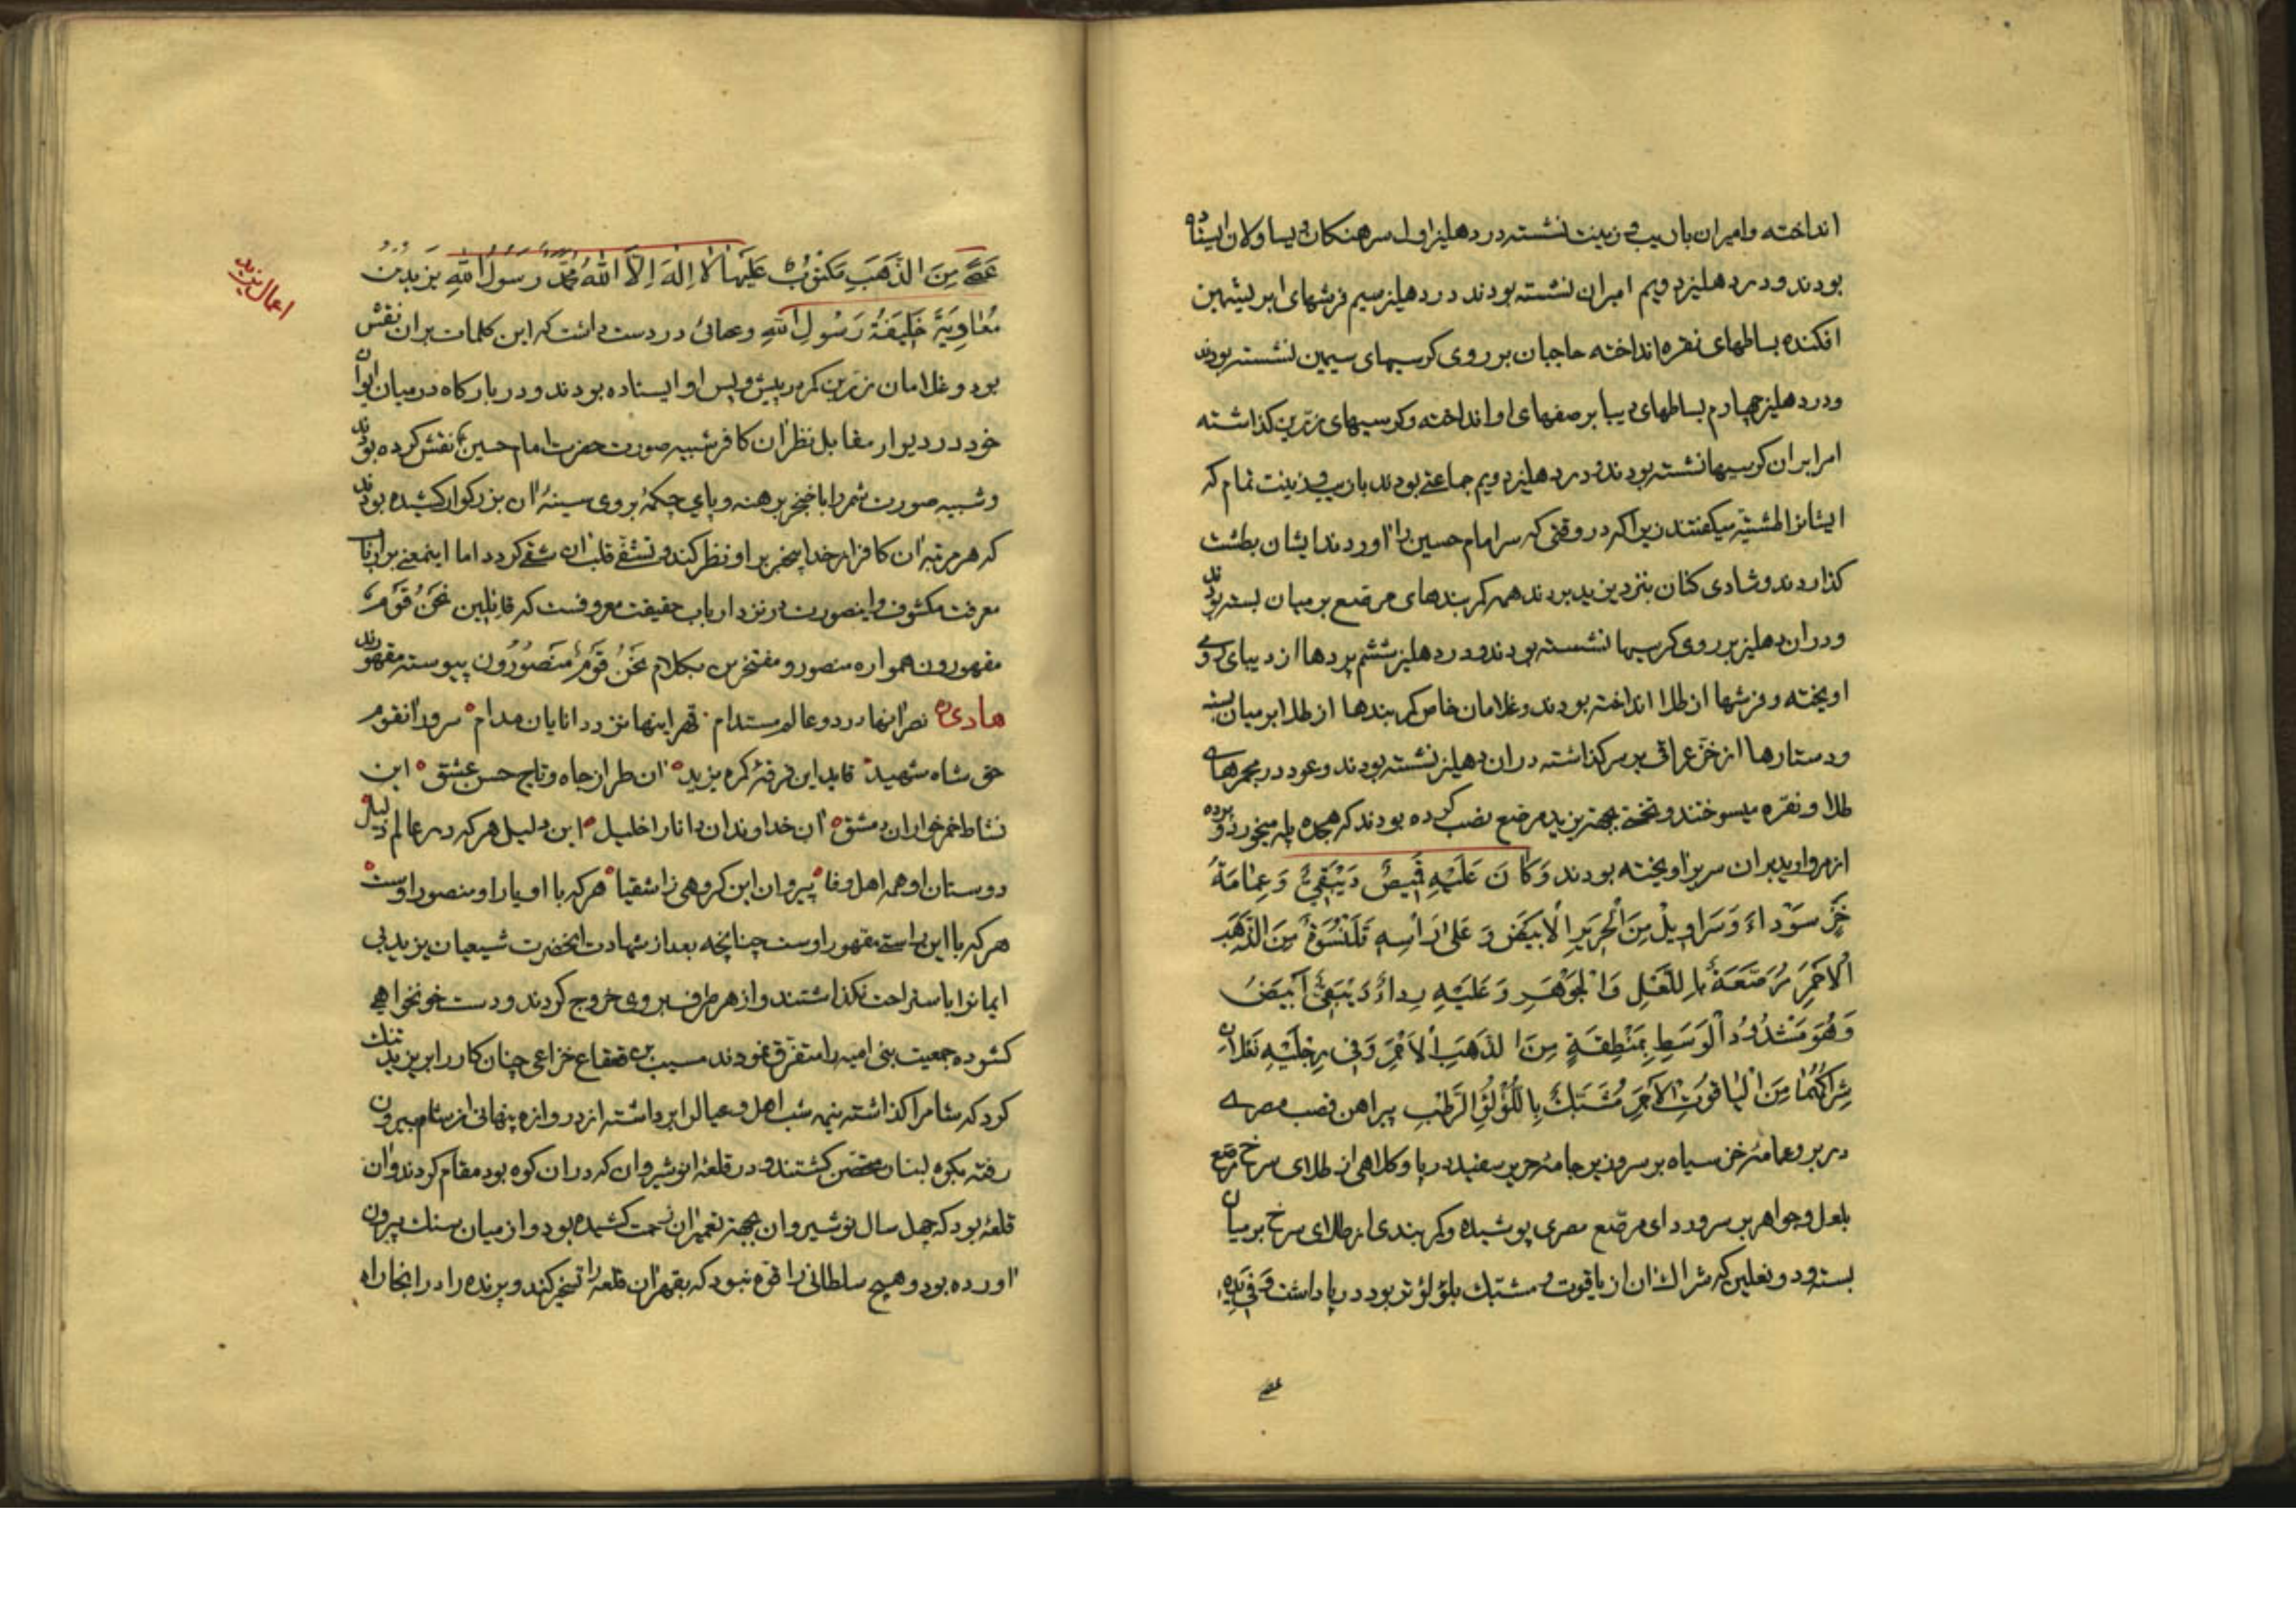 انداخته و امیران با زیب و زینت نشسته در دهلیز اول سرهنکان و یساولان ایستاده
بودند و در دهلیز دویم امیران نشسته بودند در دهلیز سیم فرشهای ابریشمین
افکنده بساطهای نقره انداخته حاجبان بر روی کرسیهای سیمین نشسته بودند
و در دهلیز چهارم بساطهای دیبا بر صفهای او انداخته و کرسیهای زرّین کذاشته
امرا بر ان کرسیها نشسته بودند و در دهلیز دویم جماعتی بودند با زیب و زینت تمام که
ایشانرا میکفتند زیرا که در وقتی که سر امام حسین را اوردند ایشان بطشت
کذاردند و شادی کنان بنزد یزید بردند همه کمربندهای مرصّع بر میان بسته بودند
و در ان دهلیز بر روی کرسیها نشسته بودند و در دهلیز ششم پردها از دیبای رومی
اویخته و فرشها از طلا انداخته بودند و غلامان خاص کمربندها از طلا بر میان بسته
و دستارها از خزّ عراقی بر سر کذاشته در ان دهلیز نشسته بودند و عود در مجمرهای
طلا و نقره میسوختند و تختی بجهة یزید مرصّع نصب کرده بودند که هجده پله میخورد و پرده
از مروارید بر ان سریر اویخته بودند وَکَانَ عَلَیْهِ قَمِیصٌ دَیْبَقِیٌّ وَعِمَامَةُ
خَزٍّ سَوْدَاءَ وَسَرَاوِیلُ مِنَ الْحَرِیرِ الْاَبْیَضِ وَعَلَی رَاْسِهِ قَلَنْسُوَةٌ مِنَ الذَّهَبِ
الْاَحْمَرِ مُرَصَّعَةٌ بِاللَّعْلِ وَالْجَوْهَرِ وَعَلَیْهِ رِدَاءٌ دَیْبَقِیٌّ اَبْیَضُ
وَهُوَ مَشْدُودُ الْوَسَطِ بِمَنْطِقَةٍ مِنَ الذَهَبِ الْاَحْمَرِ وَفِی رِجْلَیْهِ نَعْلَانِ
شِرَاکُهُمَا مِنَ الْیَاقُوتِ الْاَحْمَرِ مُشَبَّکٌ بِاللُّؤْلُؤِ الرَّطْبِ پیراهن قصب مصری
در بر و عمامهٔ خز سیاه بر سر و زیر جامهٔ حریر سفید در پا و کلاهی از طلای سرخ مرصّع
بلعل و جواهر بر سر و ردای مرصّع مصری پوشیده و کمربندی از طلای سرخ بر میان
بسته و دو نعلین که شراک ان از یاقوت و مشبّک بلؤلؤ تر بود در پا داشت وَفِی یَدِهِ
عصی
عَصیً مِنَ الذَّهَبِ مَکْتُوبٌ عَلَیْهَا لَا اِلٰهَ اِلَّا اللهُ مُحَمَّدٌ رَسُولُ اللهِ یَزِیدُ بْنُ
مُعَاوِیَةَ خَلِیفَةُ رَسُولِ اللهِ و عصائی در دست داشت که این کلمات بر ان نقش
بود و غلامان زرّین کمر در پیش و پس او ایستاده بودند و در بارکاه در میان ایوان
خود در دیوار مقابل نظر ان کافر شبیه صورت حضرت امام حسین ع نقش کرده بودند
و شبیه صورت شمر را با خنجر برهنه و پای چکمه بروی سینهٔ ان بزرکوار کشیده بودند
که هر مرتبه ان کافر از خدا بیخبر بر او نظر کند و تشفّی قلب ان شقی کردد اما اینمعنی بر ارباب
معرفت مکشوف و اینصورت در نزد ارباب حقیقت معروفست که قائلین نَحْنُ قَوْمٌ
مقهورون همواره منصور و مفتخرین بکلام نَحْنُ قَوْمٌ مَنْصُورُونَ پیوسته مقهورند
هادی نصر اینها در دو عالم مستدام قهر اینها نزد دانایان مدام سرور انقوم
حق شاه شهید قاید این فرقهٔ کمره یزید ان طراز جاه و تاج حسن عشق این
نشاط خمرخواران دمشق ان خداوندان دانا را خلیل این دلیل هر که در عالم ذلیل
دوستان او همه اهل وفا پیروان این کروهی ز اشقیا هر که با او یار او منصور اوست
هر که با این راستی مقهور اوست چنانچه بعد از شهادت انحضرت شیعیان یزید بی
ایمانرا باستراحت نکذاشتند و از هر طرف بر وی خروج کردند و دست خونخواهی
کشوده جمعیت بنی امیه را متفرّق نمودند مسیب بن قعقاع خزاعی چنان کار را بر یزید تنک
کرد که شامرا کذاشته نیمه شب اهل و عیالرا برداشته از دروازه پنهانی از شام بیرون
رفته بکوه لبنان متحصّن کشتند و در قلعهٔ انوشیروان که در ان کوه بود مقام کردند و ان
قلعهٔ بود که چهل سال نوشیروان بجهة تعمیر ان زحمت کشیده بود و از میان سنک بیرون
اورده بود و هیچ سلطانی را قوّه نبود که بقهر ان قلعه را تسخیر کند و پرنده را در انجا راه
اعمال یزید